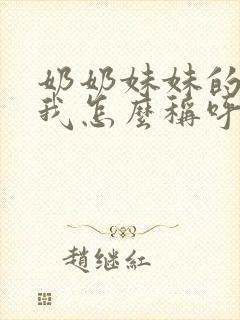 奶奶妹妹的
我怎麽稱呼
趙继紅